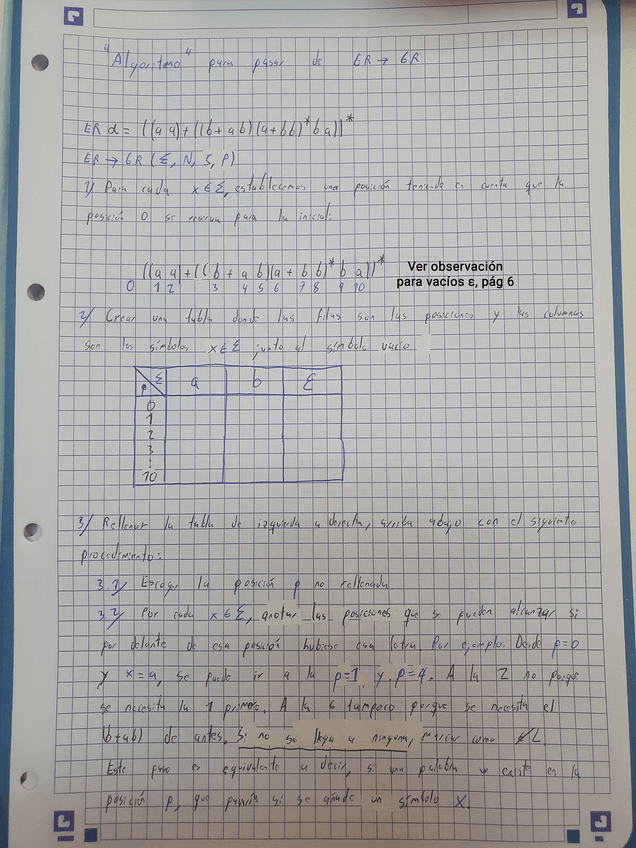 "Algoritmo" para pasar de ER → GR
ER α = ((aa)+((b+ab)(a+bb)*ba))*
ER → GR (Σ, N, S, P)
1/ Para cada x∈Σ, establecemos una posición teniendo en cuenta que la
posición 0 se reserva para la inicial:
((a a)+((b + a b)(a + b b)*b a))*
0 1 2 3 4 5 6 7 8 9 10
Ver observación
para vacíos ε, pág 6
2/ Crear una tabla donde las filas son las posiciones y las columnas
son los símbolos x∈Σ junto al símbolo vacío
P Σ a b ε
0
1
2
3
⋮
10
3/ Rellenar la tabla de izquierda a derecha, arriba abajo con el siguiente
procedimiento:
3.1/ Escoger la posición p no rellenada
3.2/ Por cada x∈Σ, anotar las posiciones que se pueden alcanzar si
por delante de esa posición hubiese esa letra. Por ejemplo: Desde p=0
y x=a, se puede ir a la p=1 y p=4. A la 2 no porque
se necesita la 1 primero. A la 6 tampoco porque se necesita el
(b+ab) de antes. Si no se llega a ninguna, marcar como
Este paso es equivalente a decir, si una palabra w existe en la
posición p, que pasaría si se añade un símbolo x.